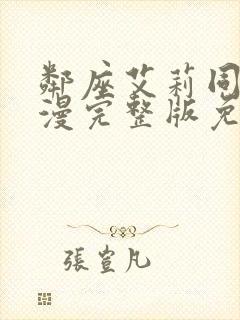 鄰座艾莉同
漫完整版免
張萱凡